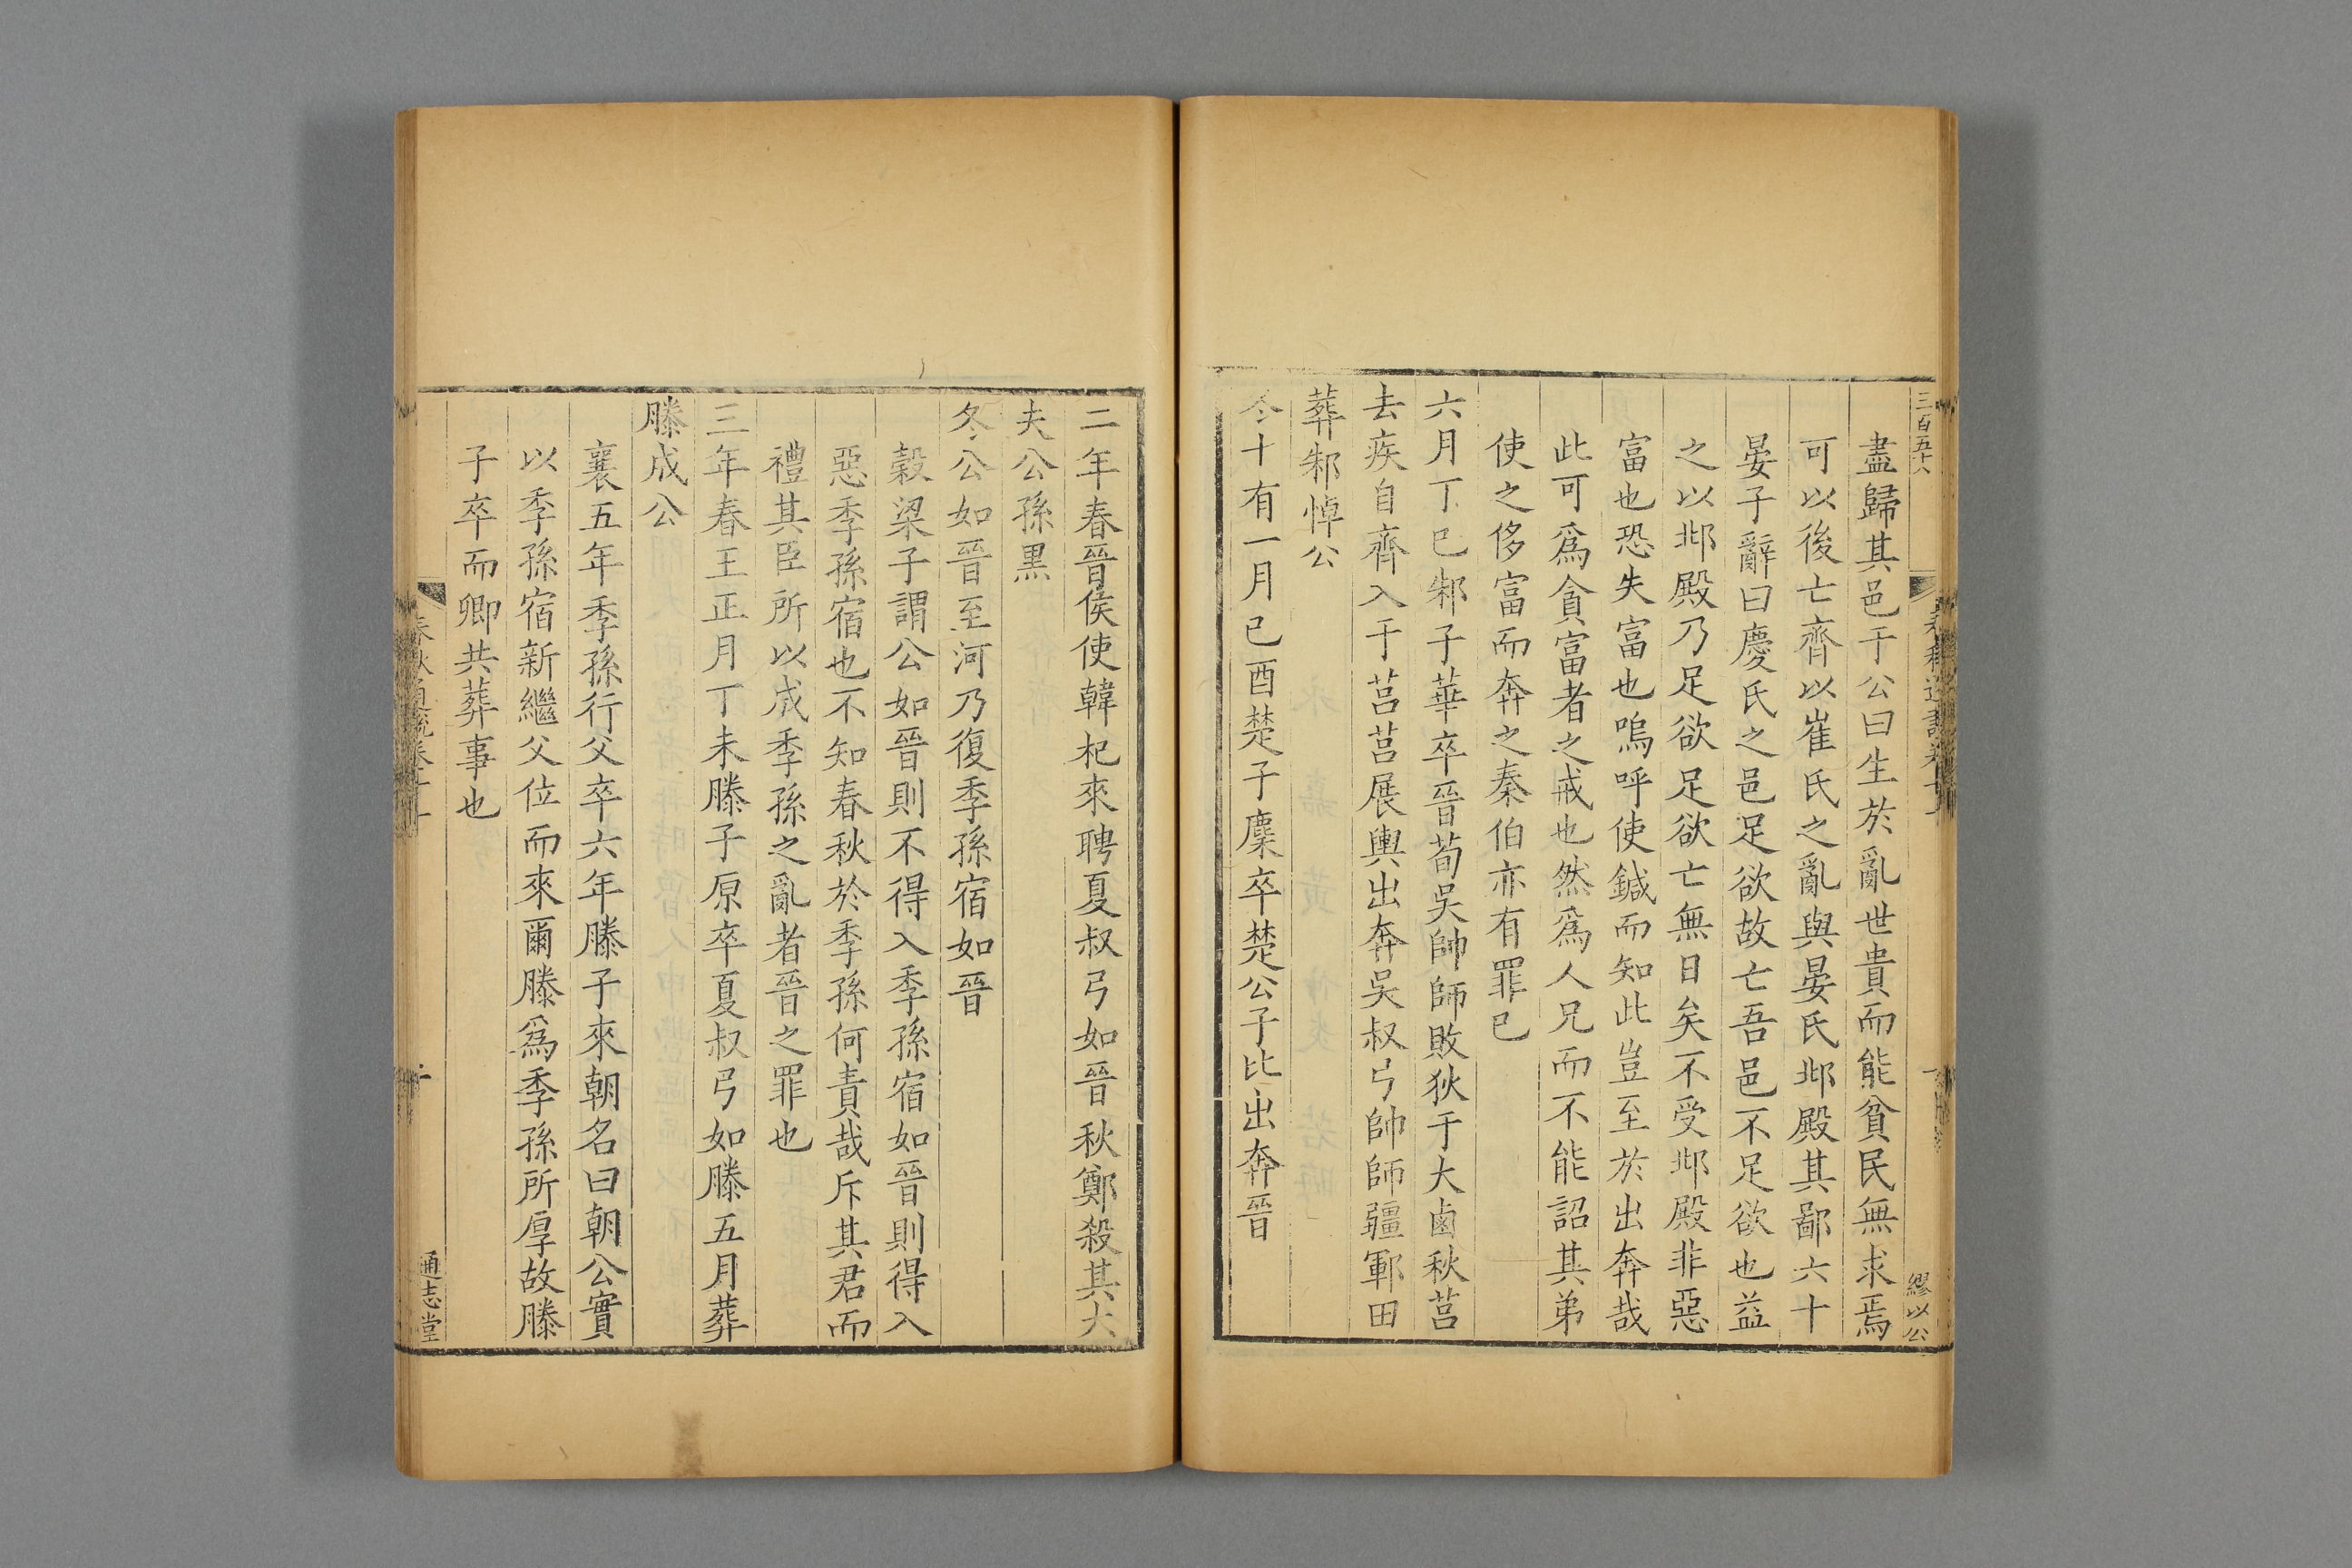 三百五十八
盡歸其邑于公曰生於亂世貴而能貧民無求焉
可以後亡齊以崔氏之亂與晏氏邶殿其鄙六十
晏子辭曰慶氏之邑足欲故亡吾邑不足欲也益
之以邶殿乃足欲足欲亡無日矣不受邶殿非惡
富也恐失富也嗚呼使鍼而知此豈至於出奔哉
此可爲貪富者之戒也然爲人兄而不能詔其弟
使之侈富而奔之秦伯亦有罪已
六月丁巳邾子華卒晉荀吳帥師敗狄于大鹵秋莒
去疾自齊入于莒莒展輿出奔吳叔弓帥師疆鄆田
葬邾悼公
冬十有一月已酉楚子麇卒楚公子比出奔晉
繆以公
二年春晉侯使韓杞來聘夏叔弓如晉秋鄭殺其大
夫公孫黑
冬公如晉至河乃復季孫宿如晉
穀梁子謂公如晉則不得入季孫宿如晉則得入
惡季孫宿也不知春秋於季孫何責哉斥其君而
禮其臣所以成季孫之亂者晉之罪也
三年春王正月丁未滕子原卒夏叔弓如滕五月葬
滕成公
襄五年季孫行父卒六年滕子來朝名曰朝公實
以季孫宿新繼父位而來爾滕爲季孫所厚故滕
子卒而卿共葬事也
通志堂